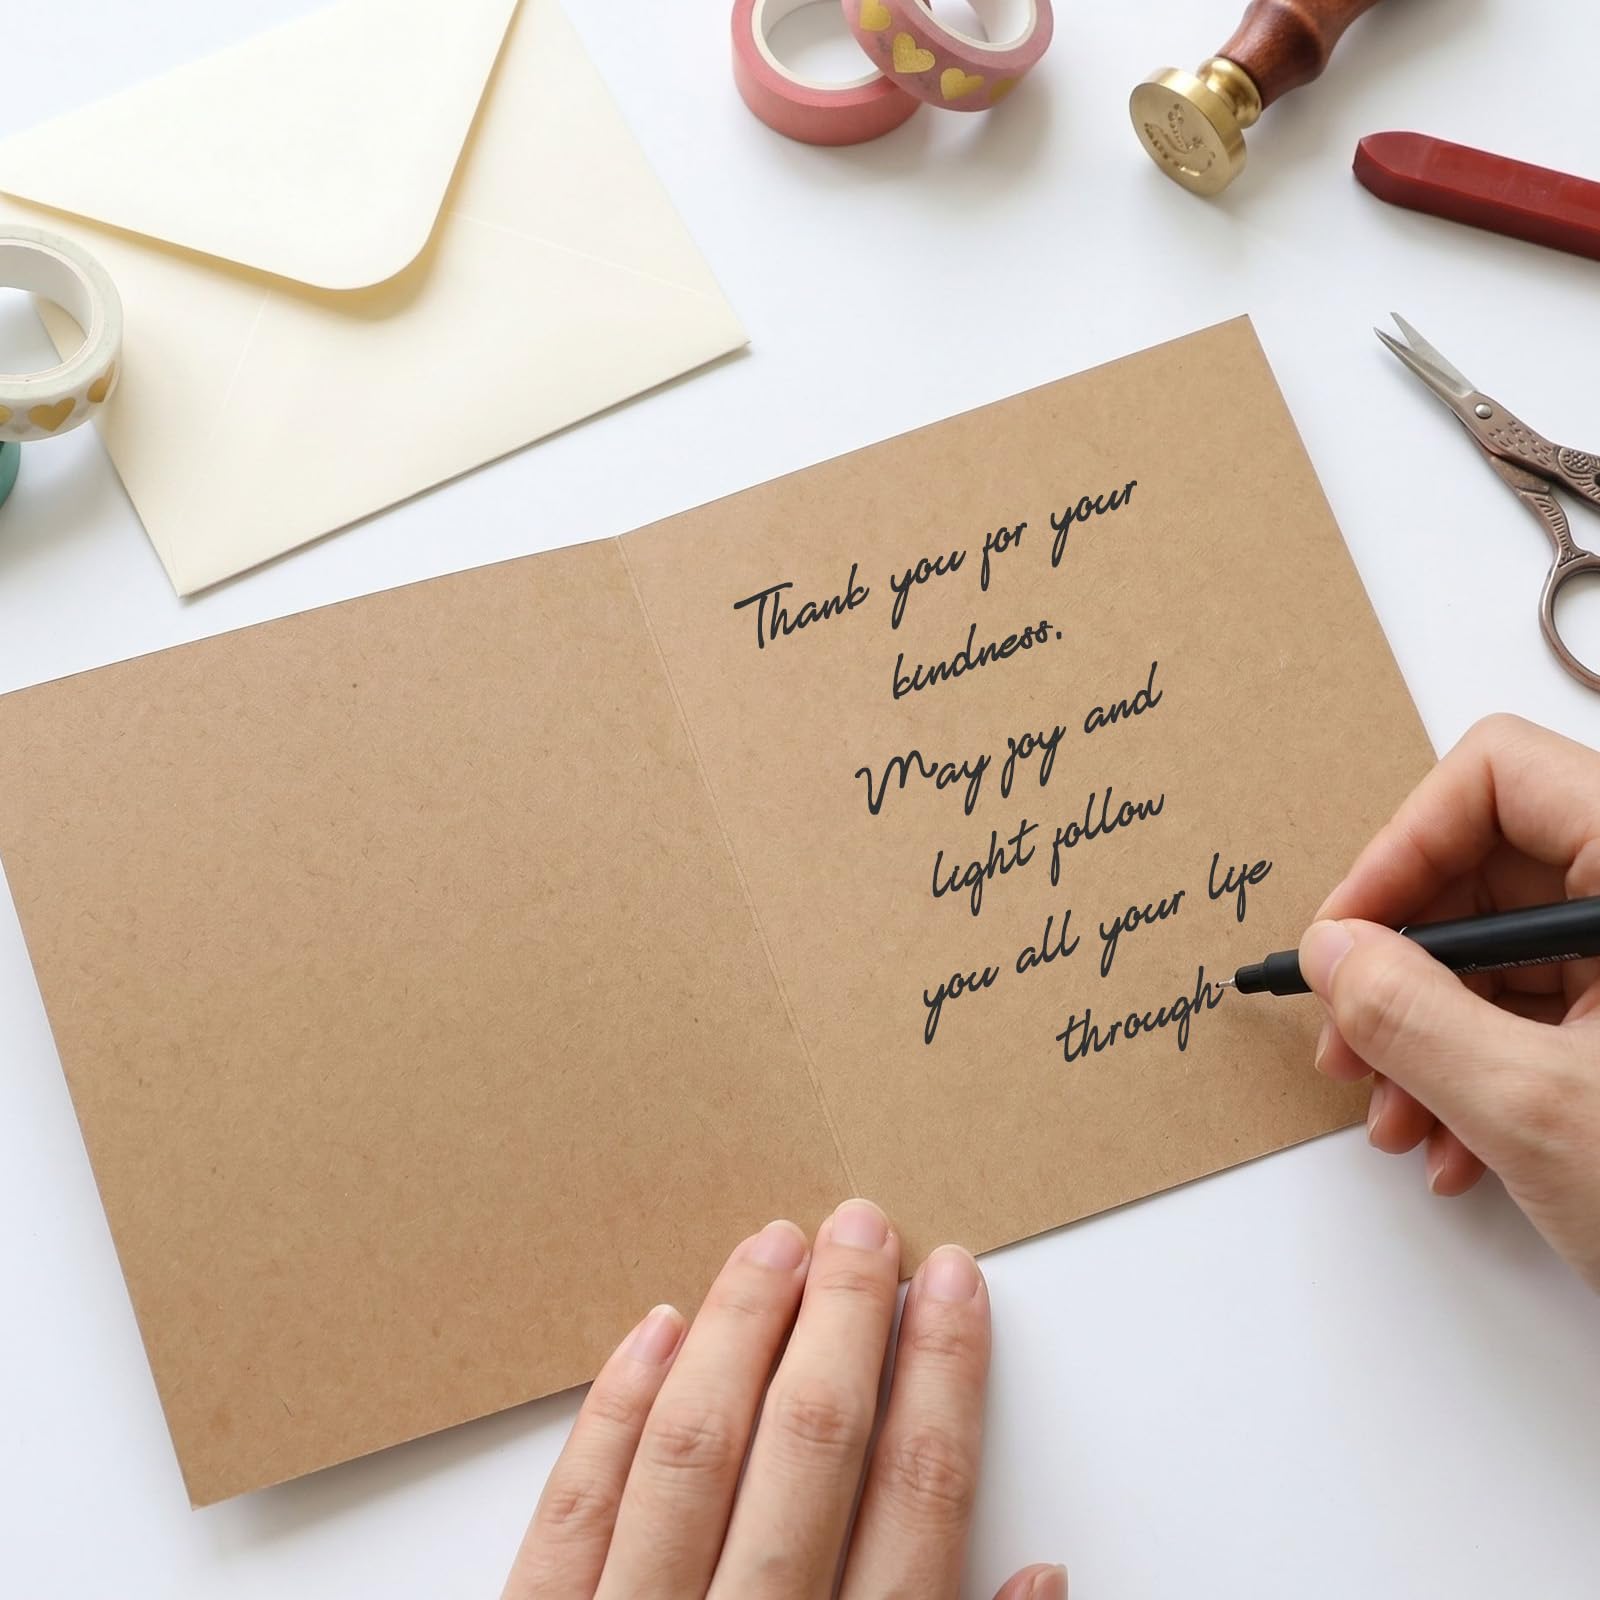 Thank you for your
kindness.
May joy and
light follow
you all your life
through